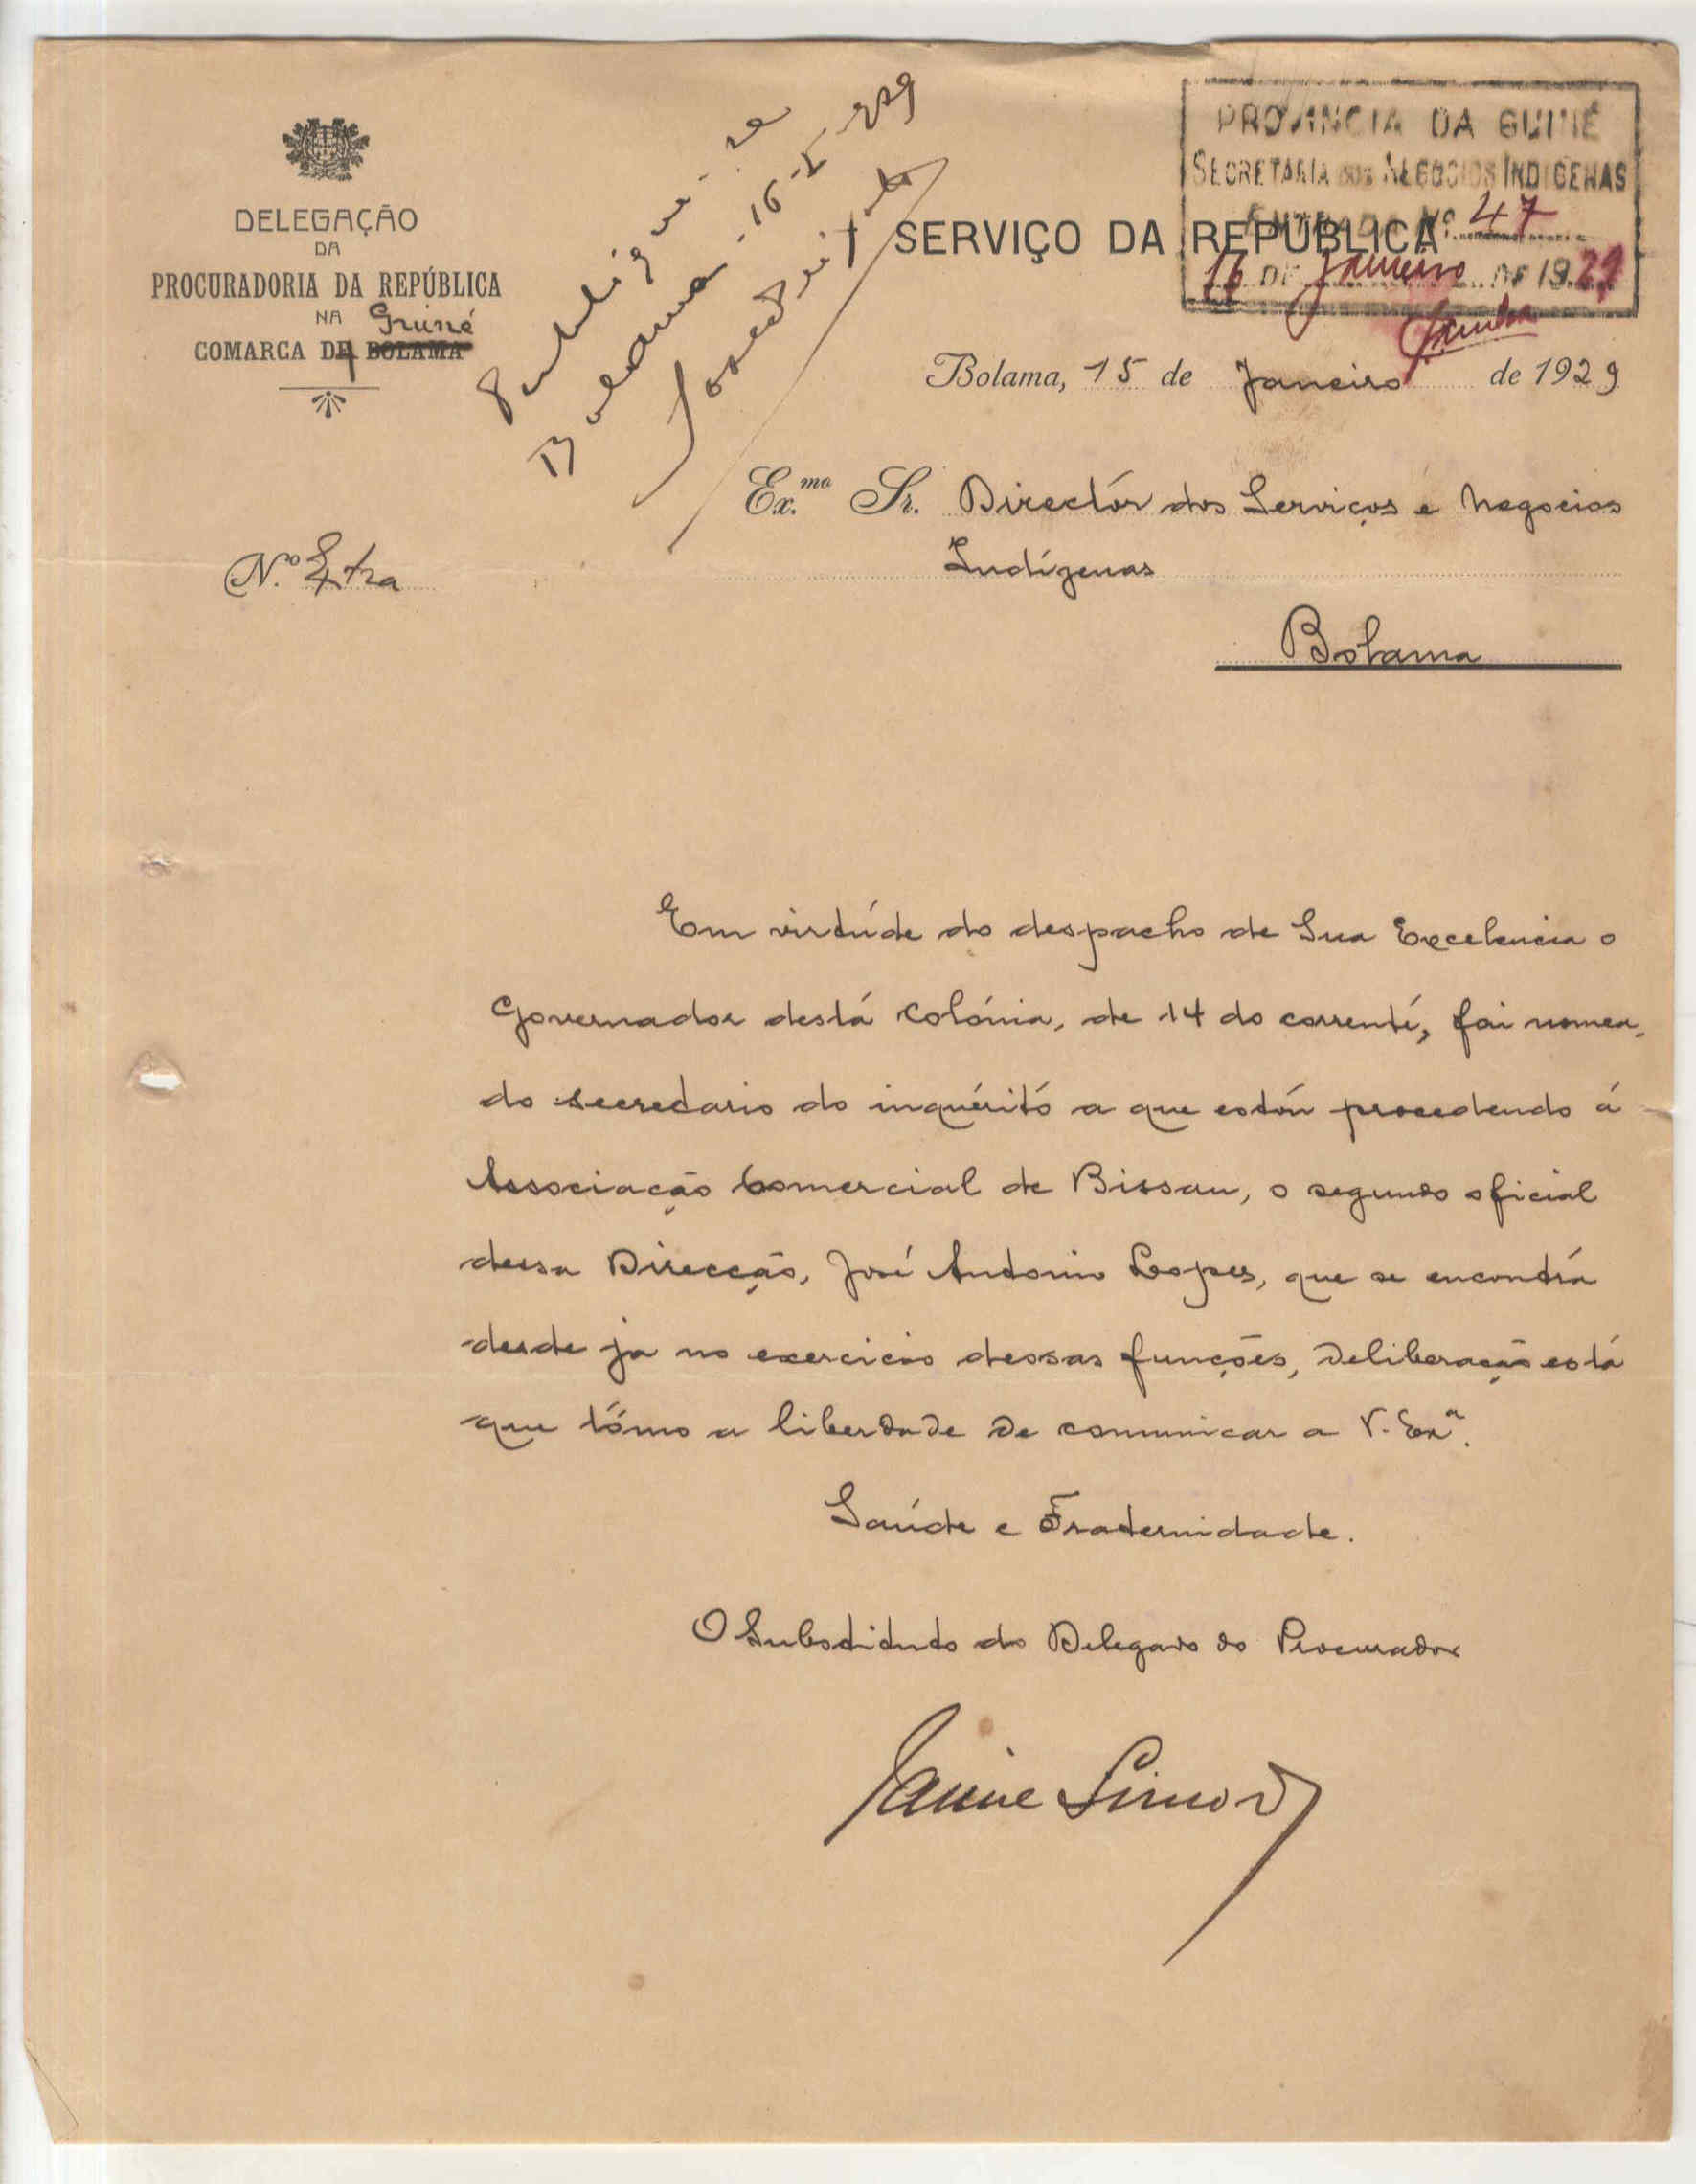 DELEGAÇÃO
DA
PROCURADORIA DA REPÚBLICA
NA
Guiné
COMARCA DA BOLAMA
Publique-se
Bolama-16-1-929
PROVINCIA DA GUINÉ
SECRETARIA DOS NEGOCIOS INDIGENAS
ENTRADA Nº 47
16 DE Janeiro DE 1929
SERVIÇO DA REPÚBLICA
Bolama, 15 de Janeiro de 1929
Ex.mo Sr. Directór dos Serviços e Negocios
Indígenas
Bolama
N.º Extra
Em virtúde do despacho de Sua Excelencia o
Governador destá Colónia, de 14 do correnté, foi nomea-
do secretario do inquéritó a que estóu procedendo á
Associação Comercial de Bissau, o segundo oficial
dessa Direcção, José Antonio Lopes, que se encontrá
desde ja no exercicio dessas funções, deliberação está
que tómo a liberdade de comunicar a V. Exª.
Saúde e Fraternidade.
O Substituto do Delegado do Procurador
Jaime Simões